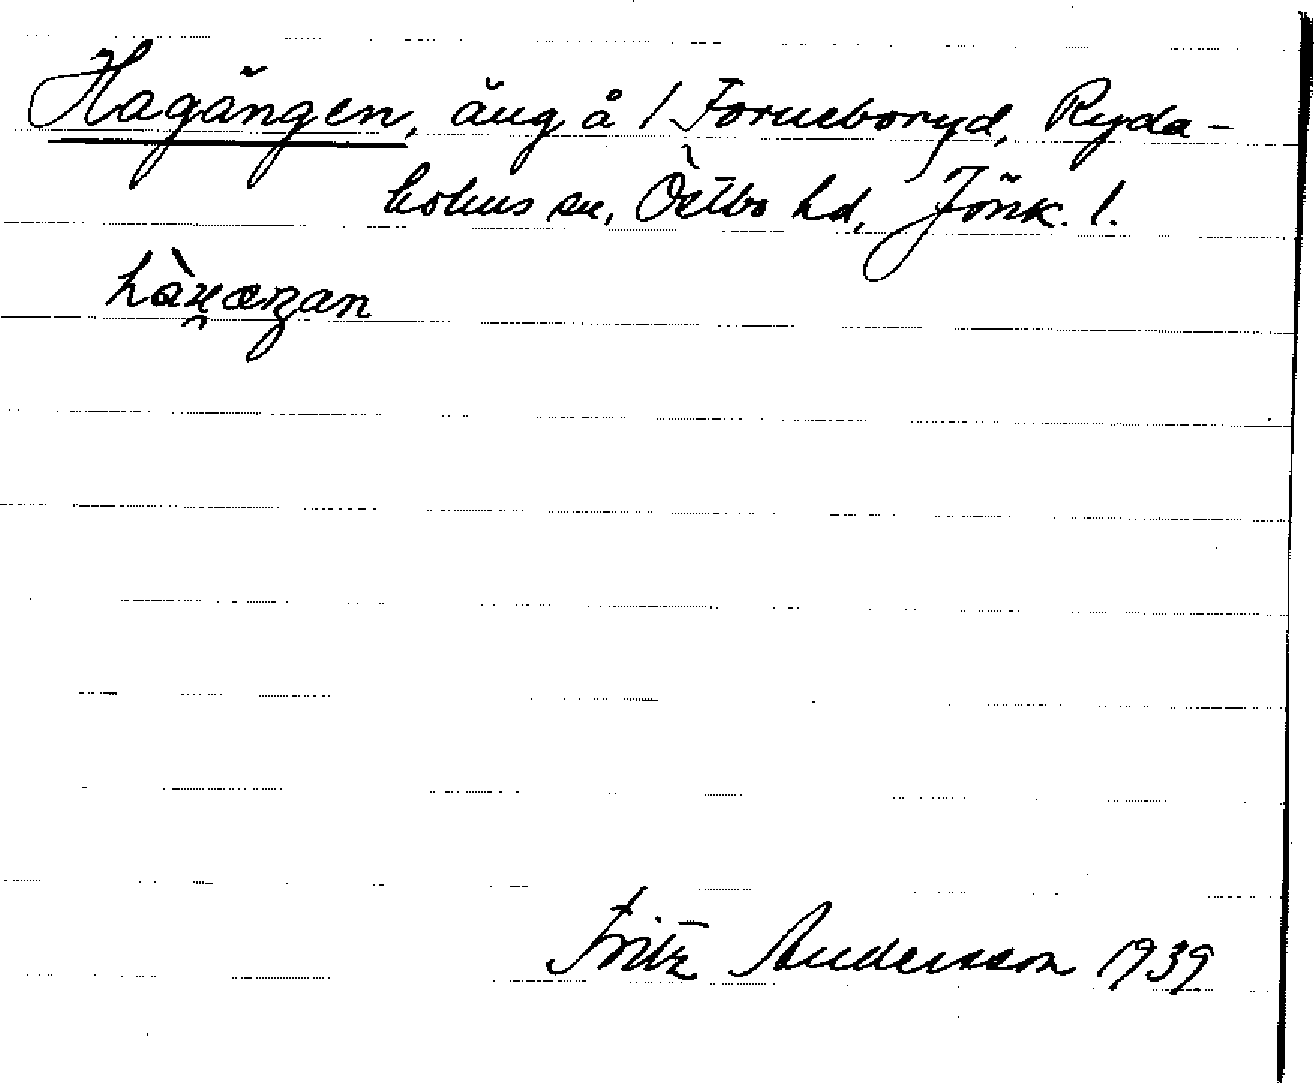 Hagängen, äng å 1 Forneboryd, Ryda-
holms sn, Östbo hd, Jönk. l.
Fritz Andersson 1939